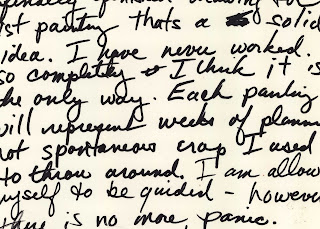 finally finished drawing for
1st painting thats a solid
idea. I have never worked
so completly & I think it is
the only way. Each painting
will represent weeks of planni
not spontaneous crap I used
to throw around. I am allow
myself to be guided – however
there is no more, panic.